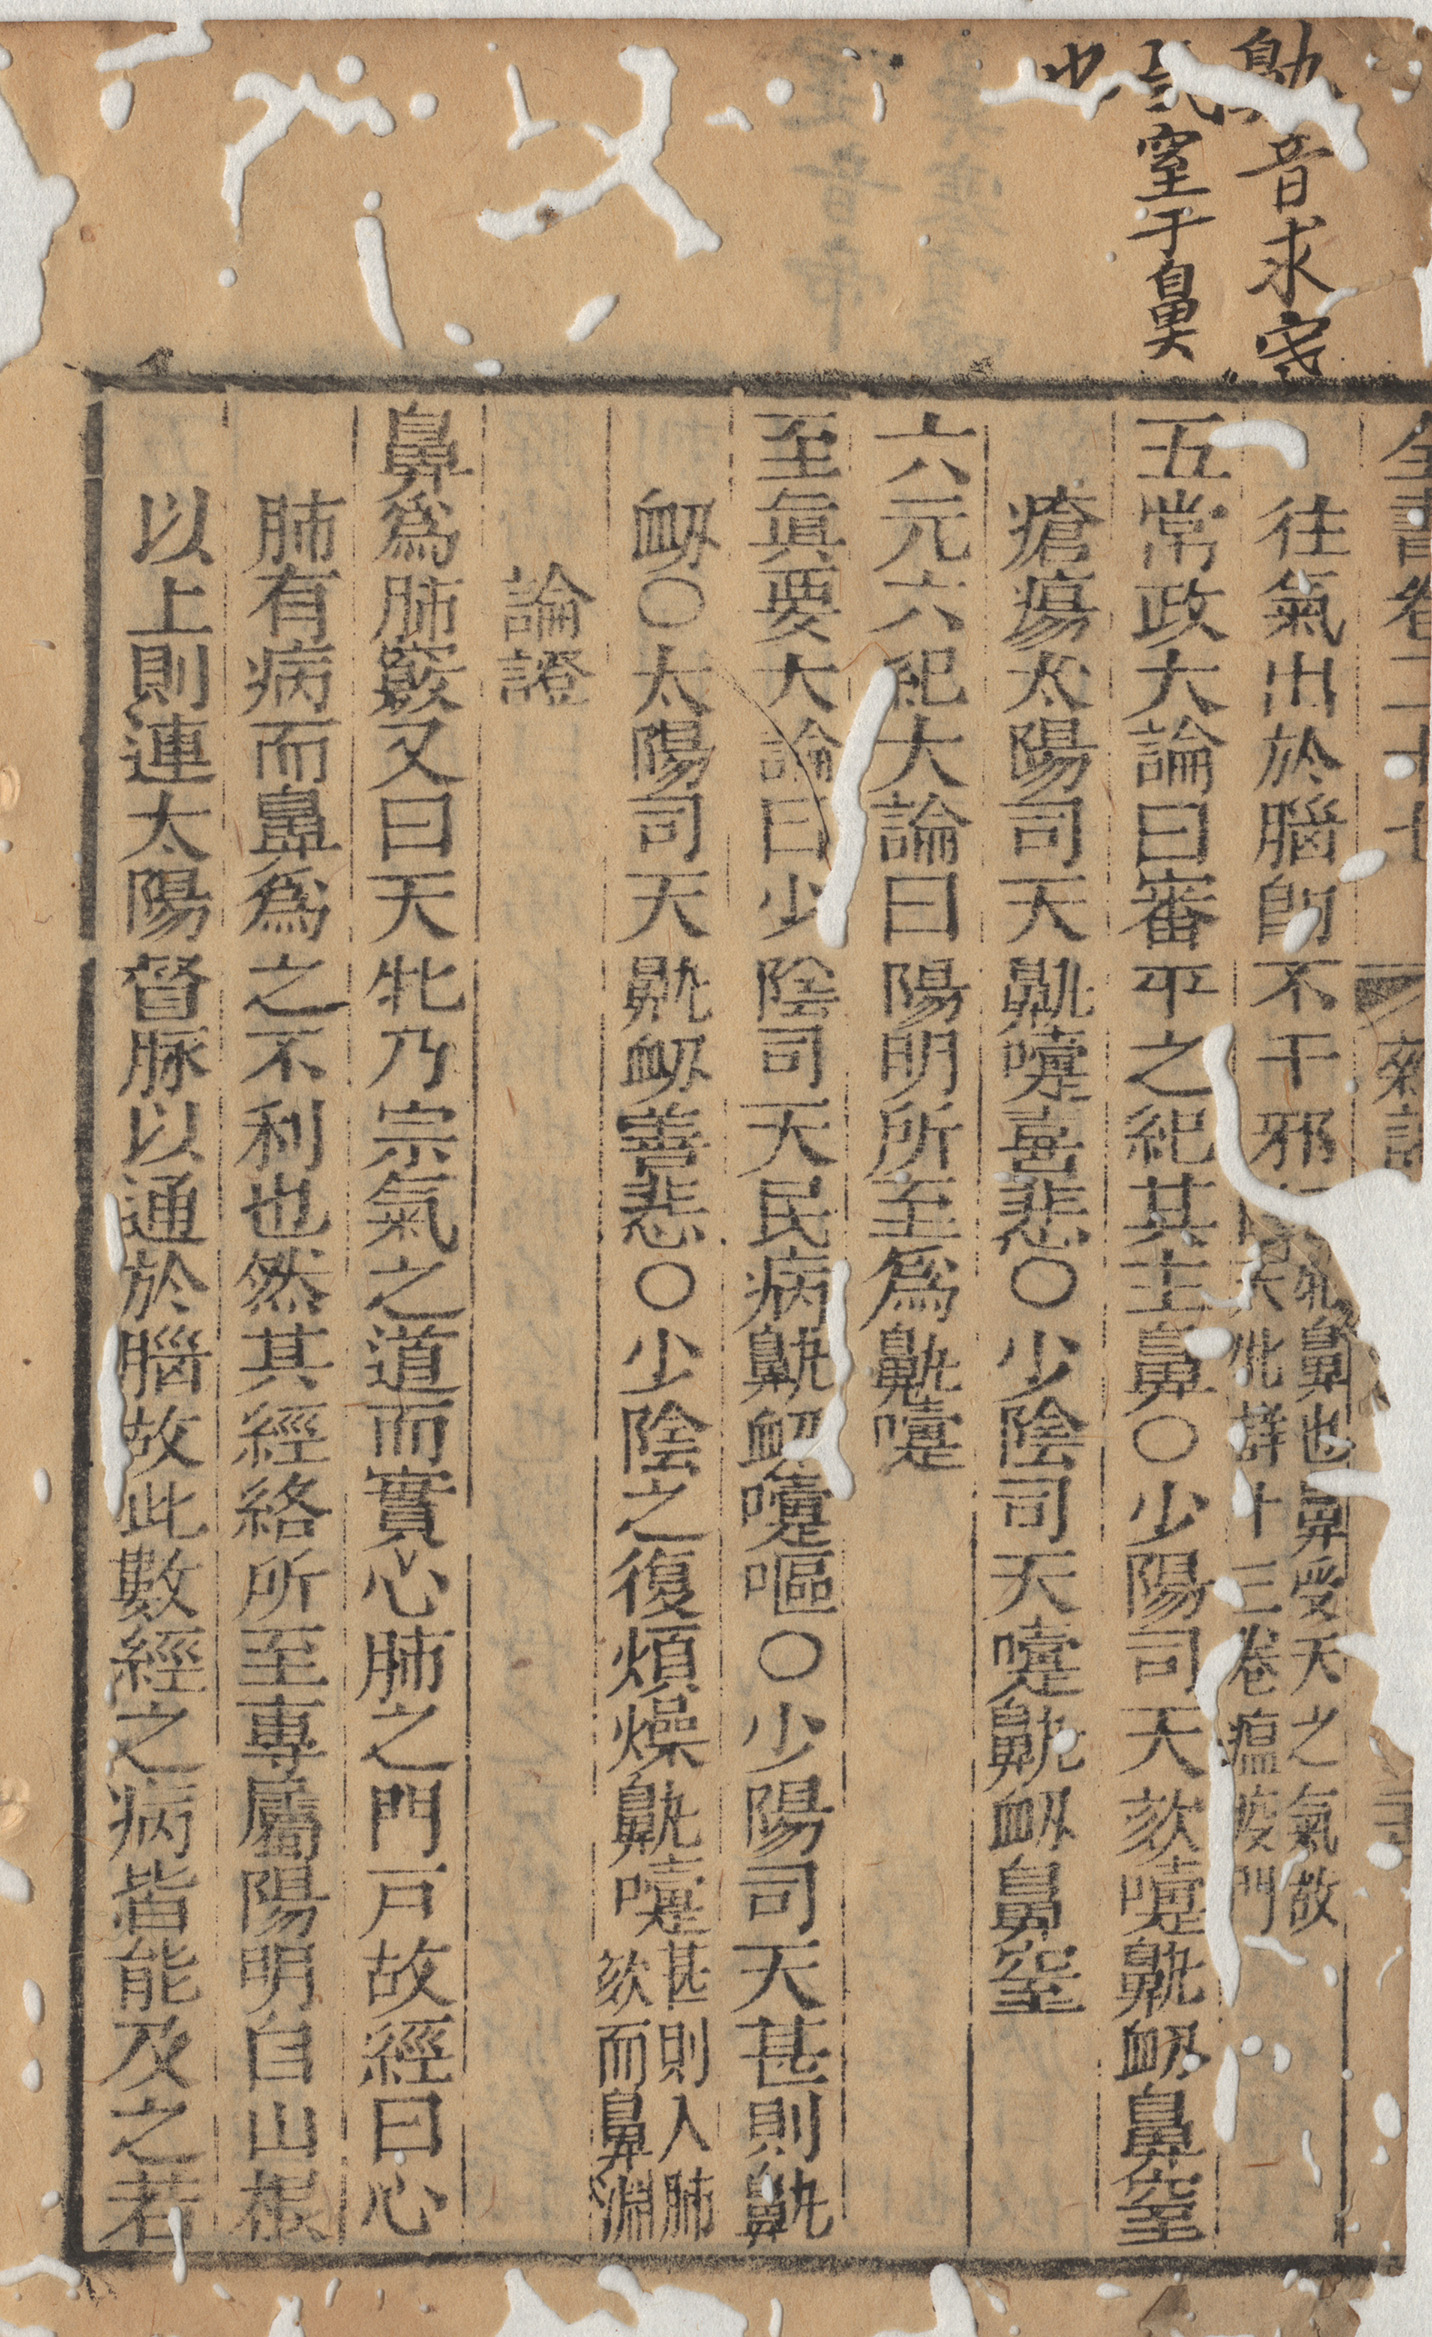 鼽音求寒
氣窒于鼻
也
全書卷二十七 雜證
往氣出於腦卽不干邪 天牝鼻也鼻受天之氣故曰天牝詳十三卷瘟疫門
五常政大論曰審平之紀其主鼻○少陽司天欬嚏鼽衂鼻窒
瘡瘍太陽司天鼽嚏喜悲○少陰司天嚏鼽衂鼻窒
六元六紀大論曰陽明所至爲鼽嚏
至眞要大論曰少陰司天民病鼽衂嚏嘔○少陽司天甚則鼽
衂○太陽司天鼽衂善悲○少陰之復煩燥鼽嚏甚則入肺欬而鼻淵
論證
鼻爲肺竅又曰天牝乃宗氣之道而實心肺之門戸故經曰心
肺有病而鼻爲之不利也然其經絡所至專屬陽明自山根
以上則連太陽督脉以通於腦故此數經之病皆能及之若